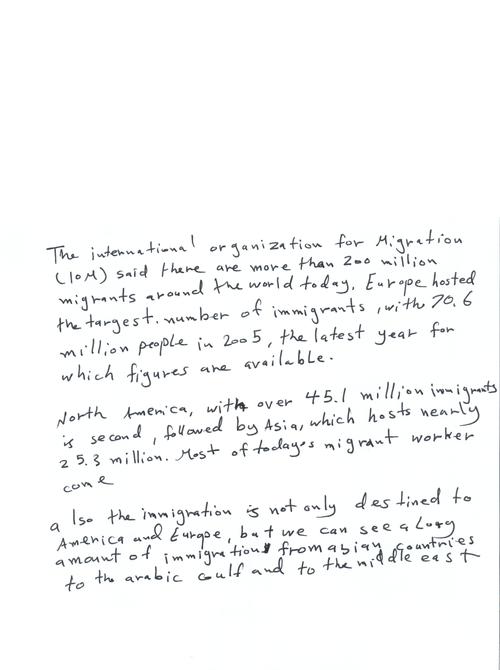 The international organization for Migration
(IOM) said there are more than 200 million
migrants around the world today. Europe hosted
the targest. number of immigrants, with 70.6
million people in 2005, the latest year for
which figures are available.
North America, with over 45.1 million immigrants
is second, followed by Asia, which hosts nearly
25.3 million. Most of todayes migrant worker
come
a lso the immigration is not only destined to
America and Europe, but we can see a
amount of immigrations from asian countries
to the arabic gulf and to the middle east